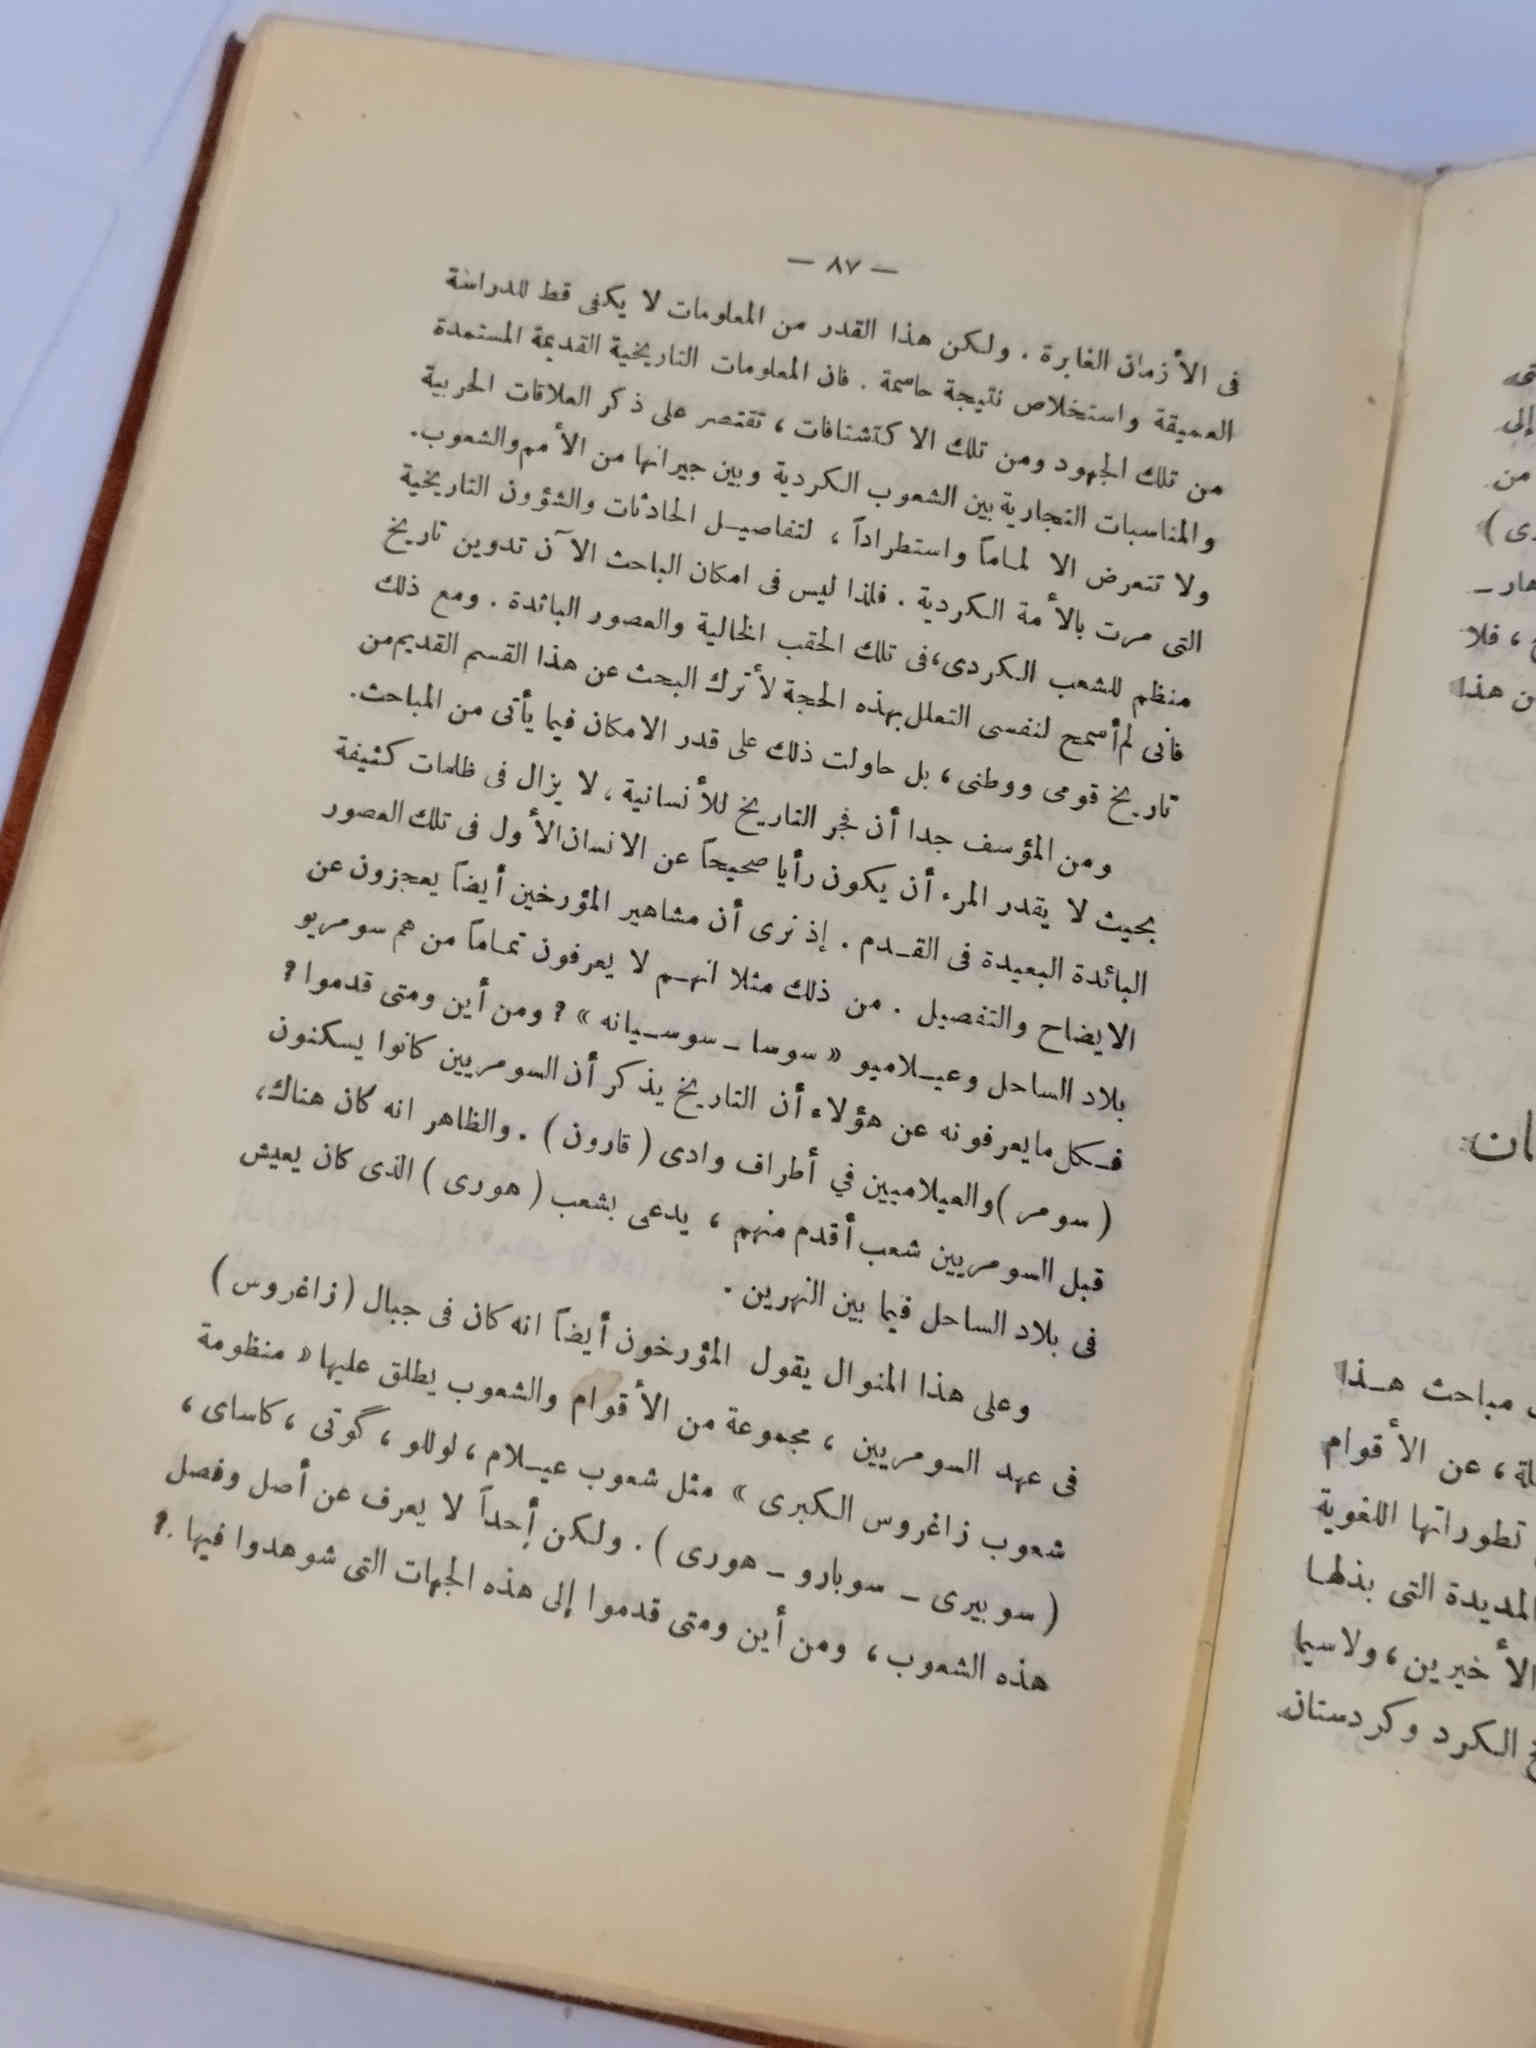 — ٨٧ —
فى الأزمان الغابرة . ولكن هذا القدر من المعلومات لا يكفى قط للدراسة
العميقة واستخلاص نتيجة حاسمة . فان المعلومات التاريخية القديمة المستمدة
من تلك الجهود ومن تلك الاكتشافات ، تقتصر على ذكر العلاقات الحربية
والمناسبات التجارية بين الشعوب الكردية وبين جيرانها من الأمم والشعوب.
ولا تتعرض الا لماماً واستطراداً ، لتفاصيل الحادثات والشؤون التاريخية
التى مرت بالأمة الكردية . فلذا ليس فى امكان الباحث الآن تدوين تاريخ
منظم للشعب الكردى، فى تلك الحقب الخالية والعصور البائدة . ومع ذلك
فانى لم أسمح لنفسى التعلل بهذه الحجة لأترك البحث عن هذا القسم القديم من
تاريخ قومى ووطنى ، بل حاولت ذلك على قدر الامكان فيما يأتى من المباحث.
ومن المؤسف جدا أن فجر التاريخ للأنسانية ، لا يزال فى ظلمات كثيفة
بحيث لا يقدر المرء أن يكون رأيا صحيحاً عن الانسان الأول فى تلك العصور
البائدة البعيدة فى القدم . إذ نرى أن مشاهير المؤرخين أيضاً يعجزون عن
الايضاح والتفصيل . من ذلك مثلا انهم لا يعرفون تماماً من هم سومريو
بلاد الساحل وعيلاميو « سوسا ـ سوسيانه » ؟ ومن أين ومتى قدموا ؟
فكل ما يعرفونه عن هؤلاء أن التاريخ يذكر أن السومريين كانوا يسكنون
( سومر ) والعيلاميين في أطراف وادى ( قارون ) . والظاهر انه كان هناك،
قبل السومريين شعب أقدم منهم ، يدعى بشعب ( هورى ) الذى كان يعيش
فى بلاد الساحل فيما بين النهرين .
وعلى هذا المنوال يقول المؤرخون أيضاً انه كان فى جبال ( زاغروس )
فى عهد السومريين ، مجموعة من الأقوام والشعوب يطلق عليها « منظومة
شعوب زاغروس الكبرى » مثل شعوب عيلام ، لوللو ، گوتى ، كاساى ،
( سوبيرى ـ سوبارو ـ هورى ) . ولكن أحداً لا يعرف عن أصل وفصل
هذه الشعوب ، ومن أين ومتى قدموا إلى هذه الجهات التى شوهدوا فيها .؟
إلى
من
فلا
هذا
مباحث هذا
عن الأقوام
تطوراتها اللغوية
المديدة التى بذلها
الأخيرين ، ولاسيما
الكرد وكردستان